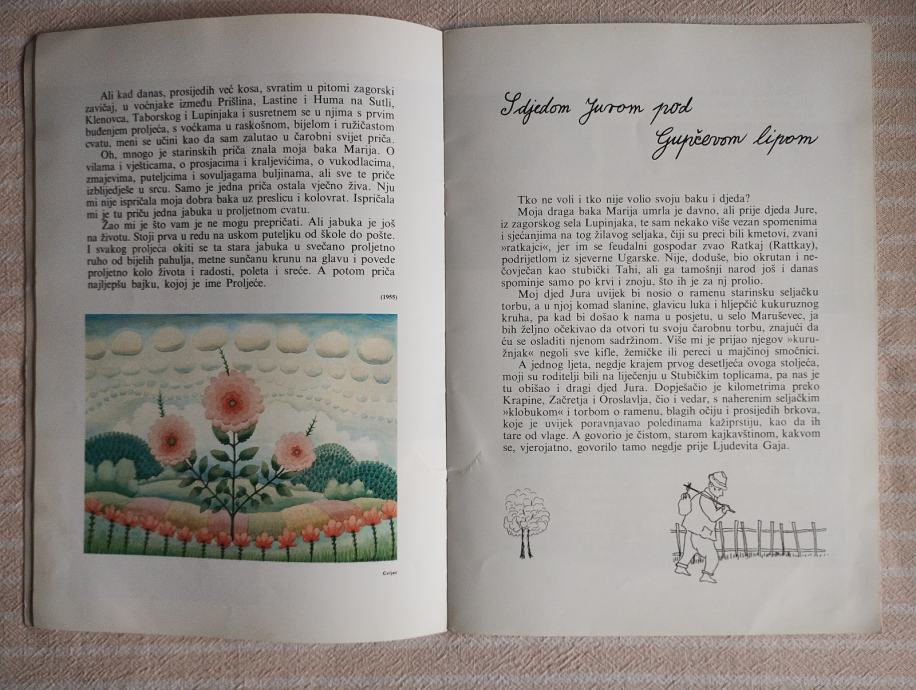 Ali kad danas, prosijedih već kosa, svratim u pitomi zagorski
zavičaj, u voćnjake između Prišlina, Lastine i Huma na Sutli,
Klenovca, Taborskog i Lupinjaka i susretnem se u njima s prvim
buđenjem proljeća, s voćkama u raskošnom, bijelom i ružičastom
cvatu, meni se učini kao da sam zalutao u čarobni svijet priča.
Oh, mnogo je starinskih priča znala moja baka Marija. O
vilama i vješticama, o prosjacima i kraljevićima, o vukodlacima,
zmajevima, puteljcima i sovuljagama buljinama, ali sve te priče
izblijedješe u srcu. Samo je jedna priča ostala vječno živa. Nju
mi nije ispričala moja dobra baka uz preslicu i kolovrat. Ispričala
mi je tu priču jedna jabuka u proljetnom cvatu.
Žao mi je što vam je ne mogu prepričati. Ali jabuka je još
na životu. Stoji prva u redu na uskom puteljku od škole do pošte.
I svakog proljeća okiti se ta stara jabuka u svečano proljetno
ruho od bijelih pahulja, metne sunčanu krunu na glavu i povede
proljetno kolo života i radosti, poleta i sreće. A potom priča
najljepšu bajku, kojoj je ime Proljeće.
(1955)
Cvijet
S djedom Jurom pod
Gupčevom lipom
Tko ne voli i tko nije volio svoju baku i djeda?
Moja draga baka Marija umrla je davno, ali prije djeda Jure,
iz zagorskog sela Lupinjaka, te sam nekako više vezan spomenima
i sjećanjima na tog žilavog seljaka, čiji su preci bili kmetovi, zvani
»ratkajci«, jer im se feudalni gospodar zvao Ratkaj (Rattkay),
podrijetlom iz sjeverne Ugarske. Nije, doduše, bio okrutan i ne-
čovječan kao stubički Tahi, ali ga tamošnji narod još i danas
spominje samo po krvi i znoju, što ih je za nj prolio.
Moj djed Jura uvijek bi nosio o ramenu starinsku seljačku
torbu, a u njoj komad slanine, glavicu luka i hljepčić kukuruznog
kruha, pa kad bi došao k nama u posjetu, u selo Maruševec, ja
bih željno očekivao da otvori tu svoju čarobnu torbu, znajući da
ću se osladiti njenom sadržinom. Više mi je prijao njegov »kuru-
žnjak« negoli sve kifle, žemičke ili pereci u majčinoj smočnici.
A jednog ljeta, negdje krajem prvog desetljeća ovoga stoljeća,
moji su roditelji bili na liječenju u Stubičkim toplicama, pa nas je
tu obišao i dragi djed Jura. Dopješačio je kilometrima preko
Krapine, Začretja i Oroslavlja, čio i vedar, s naherenim seljačkim
»klobukom« i torbom o ramenu, blagih očiju i prosijedih brkova,
koje je uvijek poravnjavao poledinama kažiprstiju, kao da ih
tare od vlage. A govorio je čistom, starom kajkavštinom, kakvom
se, vjerojatno, govorilo tamo negdje prije Ljudevita Gaja.